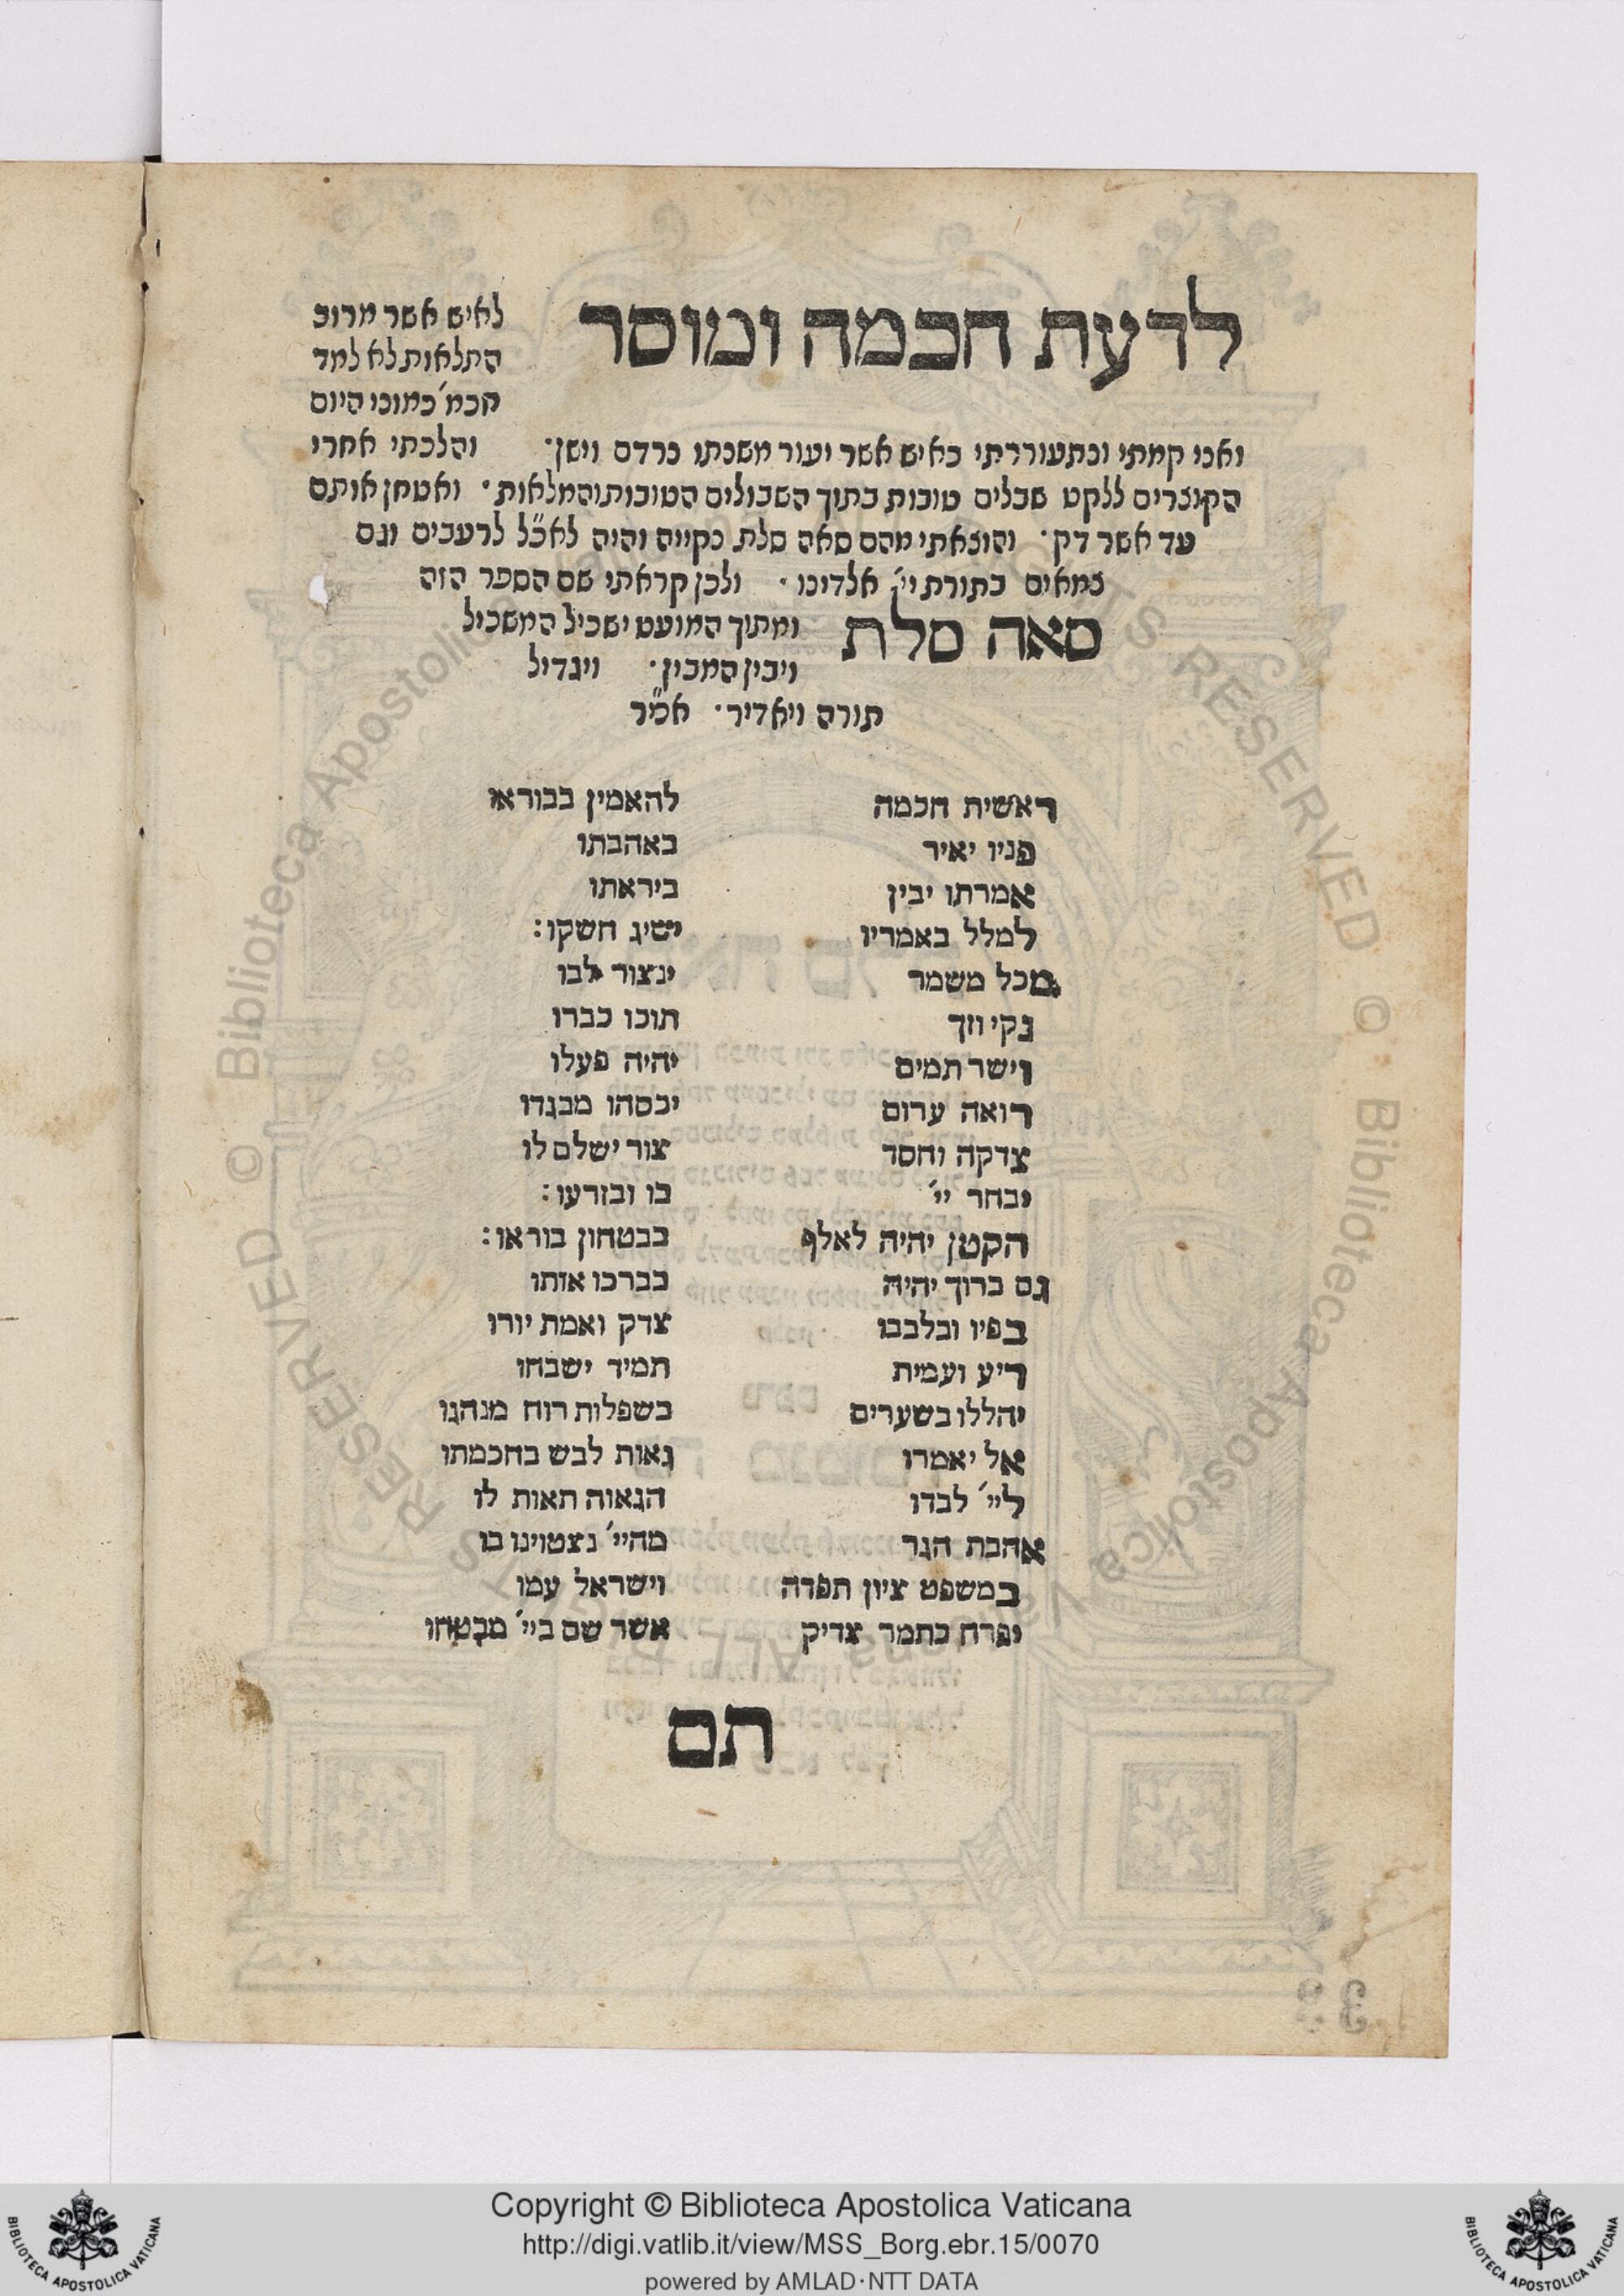 לדעת חכמה ומוסר
לאיש אשר מרוב
התלאות לא למד
חכמ׳ כמוכי היום
ואני קמתי ובתעוררתי כאיש אשר יעור משנתו נרדם וישן· והלכתי אחרי
הקוצרים ללקט שבלים טובות בתוך השבולים הטובות והמלאות· ואטחן אותם
עד אשר דק· והוצאתי מהם סאה סלת נקייה והיה לאכ״ל לרעבים וגם
צמאים בתורת יי׳ אלדינו· ולכן קראתי שם הספר הזה
סאה סלת
ומתוך המועט ישכיל המשכיל
ויבין המבין· ויגדיל
תורה ויאדיר· אמ״ר
ראשית חכמה להאמין בבוראו
פניו יאיר באהבתו
אמרתו יבין ביראתו
למלל באמריו ישיג חשקו:
מכל משמר ינצור לבו
נקי וזך תוכו כברו
וישר תמים יהיה פעלו
רואה ערום יכסהו מבגדו
צדקה וחסד צור ישלם לו
יבחר יי׳ בו ובזרעו:
הקטן יהיה לאלף בבטחון בוראו:
גם ברוך יהיה בברכו אותו
בפיו ובלבבו צדק ואמת יורו
ריע ועמית תמיד ישבחו
יהללו בשערים בשפלות רוח מנהגו
אל יאמרו גאות לבש בחכמתו
ליי׳ לבדו הגאוה תאות לו
אהבת הגר מהיי׳ נצטוינו בו
במשפט ציון תפדה וישראל עמו
יפרח כתמר צדיק אשר שם ביי׳ מבטחו
תם
Copyright © Biblioteca Apostolica Vaticana
http://digi.vatlib.it/view/MSS_Borg.ebr.15/0070
powered by AMLAD·NTT DATA